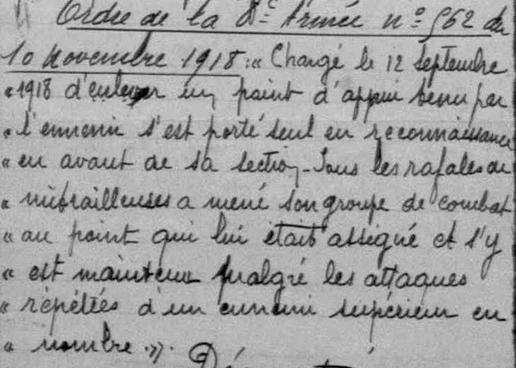 Ordre de la 8e Armée no 562 du
10 novembre 1918 :" Chargé le 12 septembre
"1918 d'enlever un point d'appui tenu par
"l'ennemi s'est porté seul en reconnaissance
"en avant de sa section - Sous les rafales de
"mitrailleuses a mené son groupe de combat
"au point qui lui était assigné et s'y
"est maintenu malgré les attaques
"répétées d'un ennemi supérieur en
"nombre .".